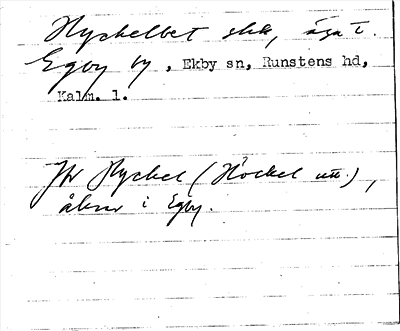 Hyckelbet skr, äga i.
Egby by, Ekby sn, Runstens hd,
Kalm. l.
Jfr Hyckel (Höckel utt.),
åkrar i Egby.